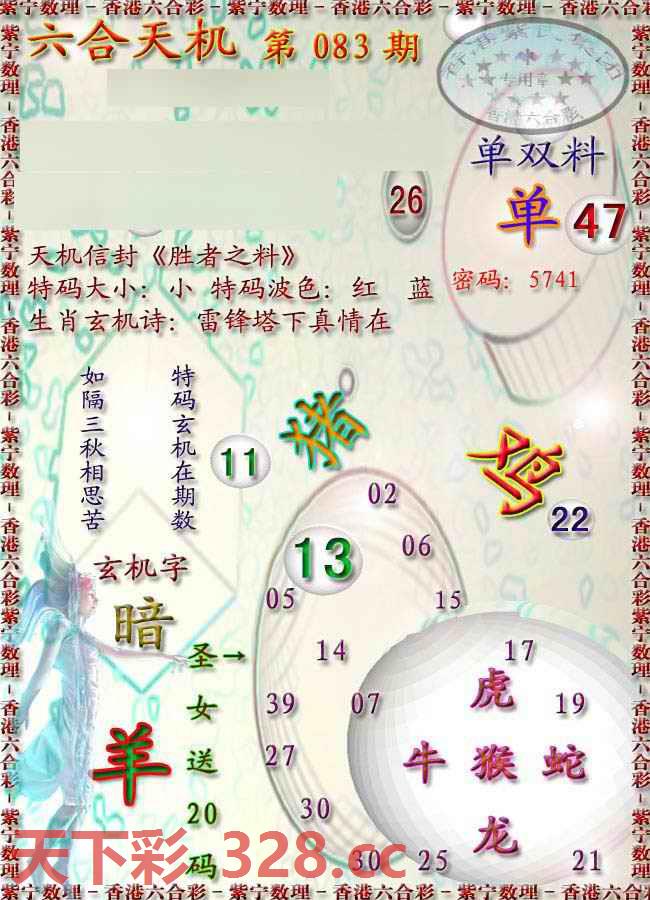 紫宁数理－香港六合彩－紫宁数理－香港六合彩－紫宁数理－香港六合彩
六合天机 第 083 期
香港紫氏集团
专用章
香港六合彩
单双料
单 47
26
天机信封《胜者之料》
特码大小：小 特码波色：红 蓝
密码：5741
生肖玄机诗：雷锋塔下真情在
特码玄机在期数
如隔三秋相思苦
11
猪
鸡
22
02
13
06
05
15
玄机字
暗
圣女送20码
→
14
17
虎
39
07
19
羊
27
牛 猴 蛇
30
龙
30
25
21
天下彩.328.cc
紫宁数理－香港六合彩－紫宁数理－香港六合彩－紫宁数理－香港六合彩